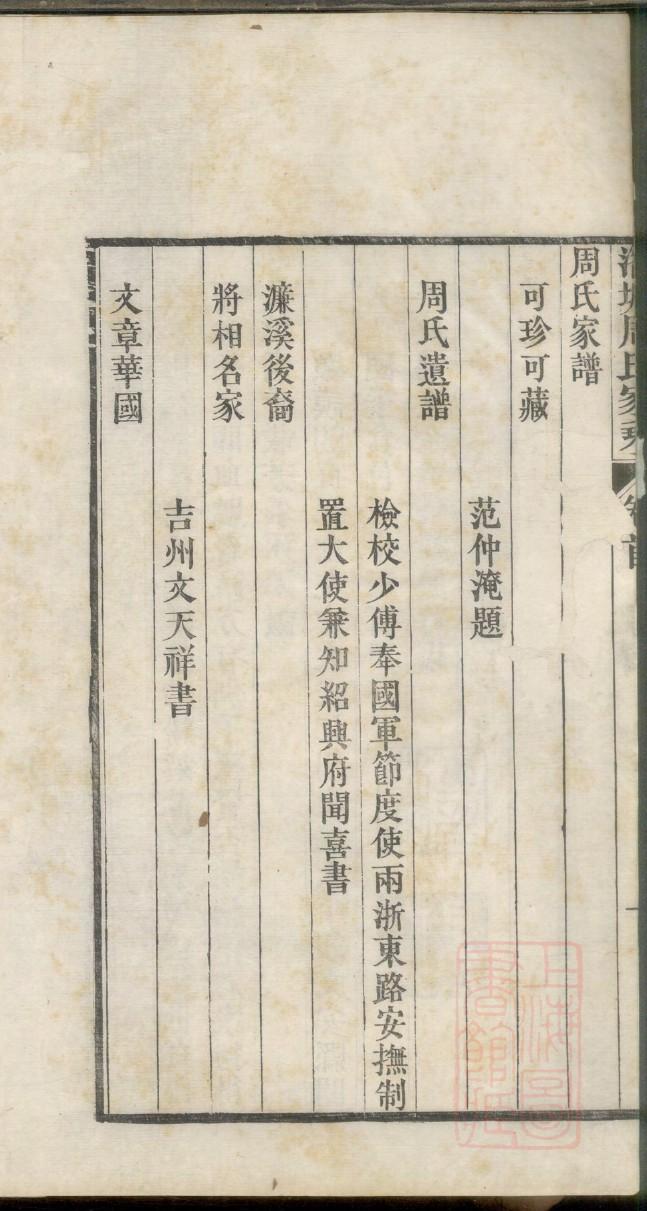 周氏家
卷首
一
周氏家譜
可珍可藏
范仲淹題
周氏遺譜
檢校少傅奉國軍節度使兩浙東路安撫制
置大使兼知紹興府聞喜書
濂溪後裔
將相名家
吉州文天祥書
文章華國
上海圖
書館藏